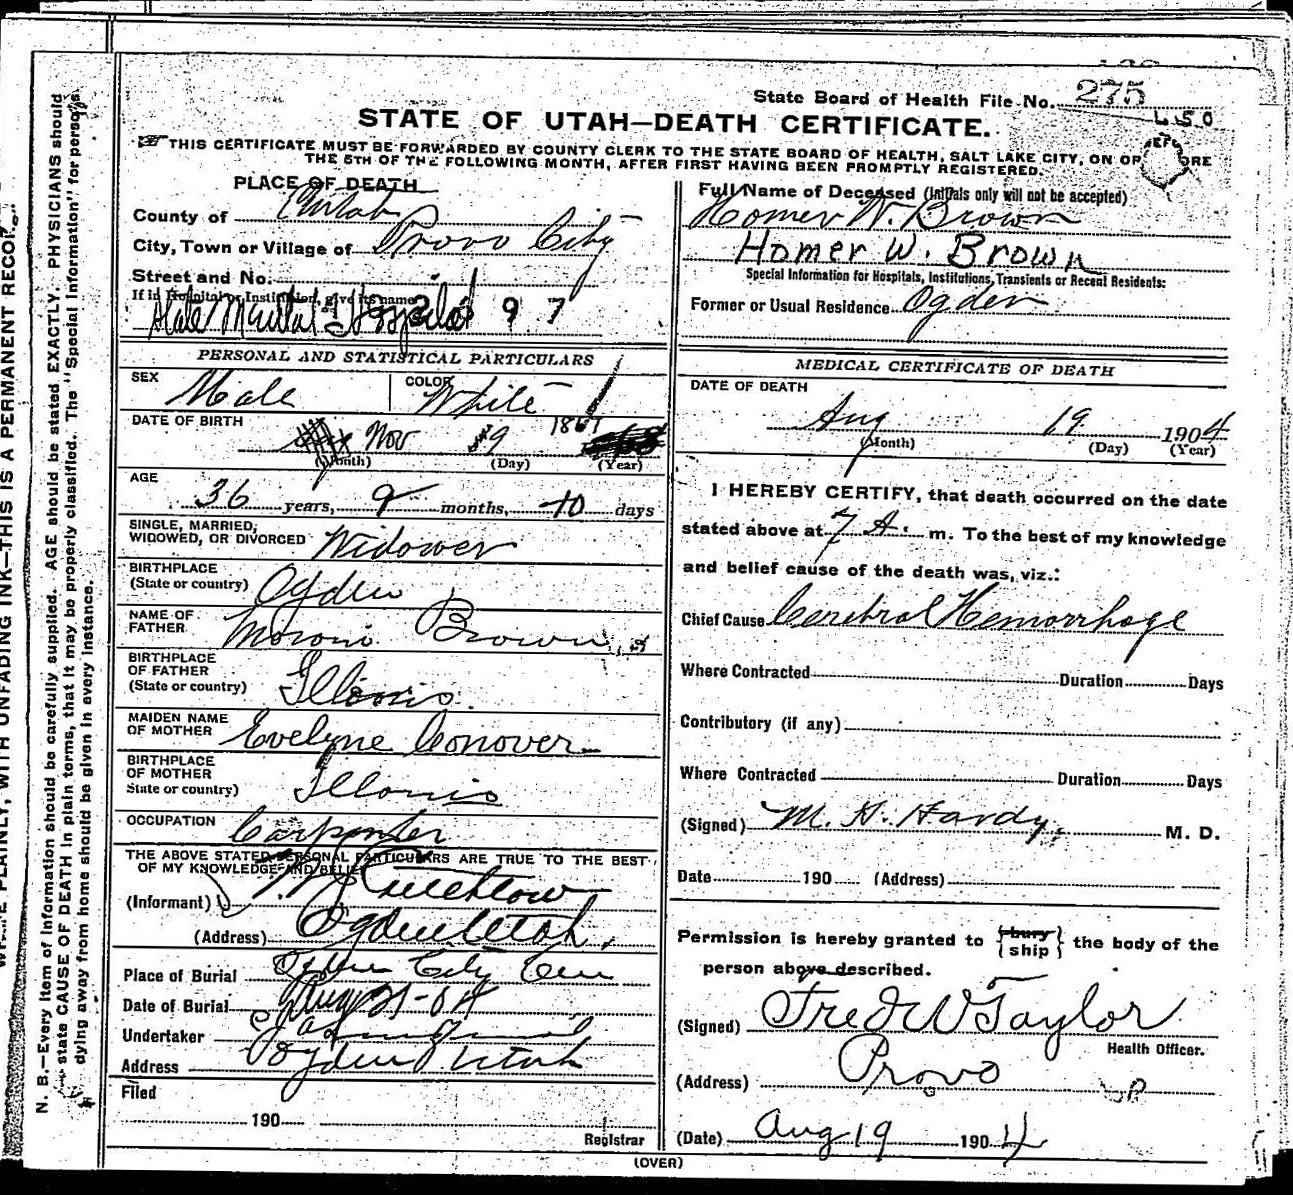 State Board of Health File No. 275
450
STATE OF UTAH—DEATH CERTIFICATE.
THIS CERTIFICATE MUST BE FORWARDED BY COUNTY CLERK TO THE STATE BOARD OF HEALTH, SALT LAKE CITY, ON OR BEFORE
THE 5TH OF THE FOLLOWING MONTH, AFTER FIRST HAVING BEEN PROMPTLY REGISTERED.
PLACE OF DEATH
County of Utah
City, Town or Village of Provo City
Street and No.
If in Hospital or Institution, give its name
State Mental Hospital 97
Full Name of Deceased (Initials only will not be accepted)
Homer W. Brown
Homer W. Brown
Special Information for Hospitals, Institutions, Transients or Recent Residents:
Former or Usual Residence Ogden
PERSONAL AND STATISTICAL PARTICULARS
SEX Male COLOR White
DATE OF BIRTH Nov 9 1867
(Month) (Day) (Year)
AGE 36 years, 9 months, 10 days
SINGLE, MARRIED,
WIDOWED, OR DIVORCED Widower
BIRTHPLACE
(State or country) Ogden
NAME OF
FATHER Moroni Brown
BIRTHPLACE
OF FATHER
(State or country) Illonis.
MAIDEN NAME
OF MOTHER Evelyne Conover
BIRTHPLACE
OF MOTHER
State or country) Illonis
OCCUPATION Carpenter
THE ABOVE STATED PERSONAL PARTICULARS ARE TRUE TO THE BEST
OF MY KNOWLEDGE AND BELIEF
(Informant)
(Address) Ogden Utah,
Place of Burial Ogden City Cem
Date of Burial Aug 21-04
Undertaker
Address Ogden Utah
Filed
190
Registrar
MEDICAL CERTIFICATE OF DEATH
DATE OF DEATH
Aug 19 1904
(Month) (Day) (Year)
I HEREBY CERTIFY, that death occurred on the date
stated above at 7 A. m. To the best of my knowledge
and belief cause of the death was, viz.:
Chief Cause Cerebral Hemorrhage
Where Contracted Duration Days
Contributory (if any)
Where Contracted Duration Days
(Signed) M. H. Hardy, M. D.
Date 190 (Address)
Permission is hereby granted to {bury
ship} the body of the
person above described.
(Signed) Fred W Taylor
Health Officer.
(Address) Provo
(Date) Aug 19 1904
(OVER)
PLAINLY, WITH UNFADING INK—THIS IS A PERMANENT RECORD.
N. B.—Every item of information should be carefully supplied. AGE should be stated EXACTLY. PHYSICIANS should
state CAUSE OF DEATH in plain terms, that it may be properly classified. The "Special Information" for persons
dying away from home should be given in every instance.